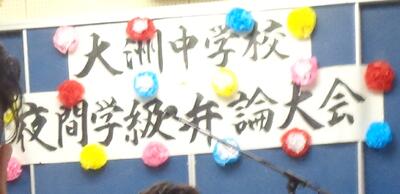 大洲中学校
夜間学級弁論大会